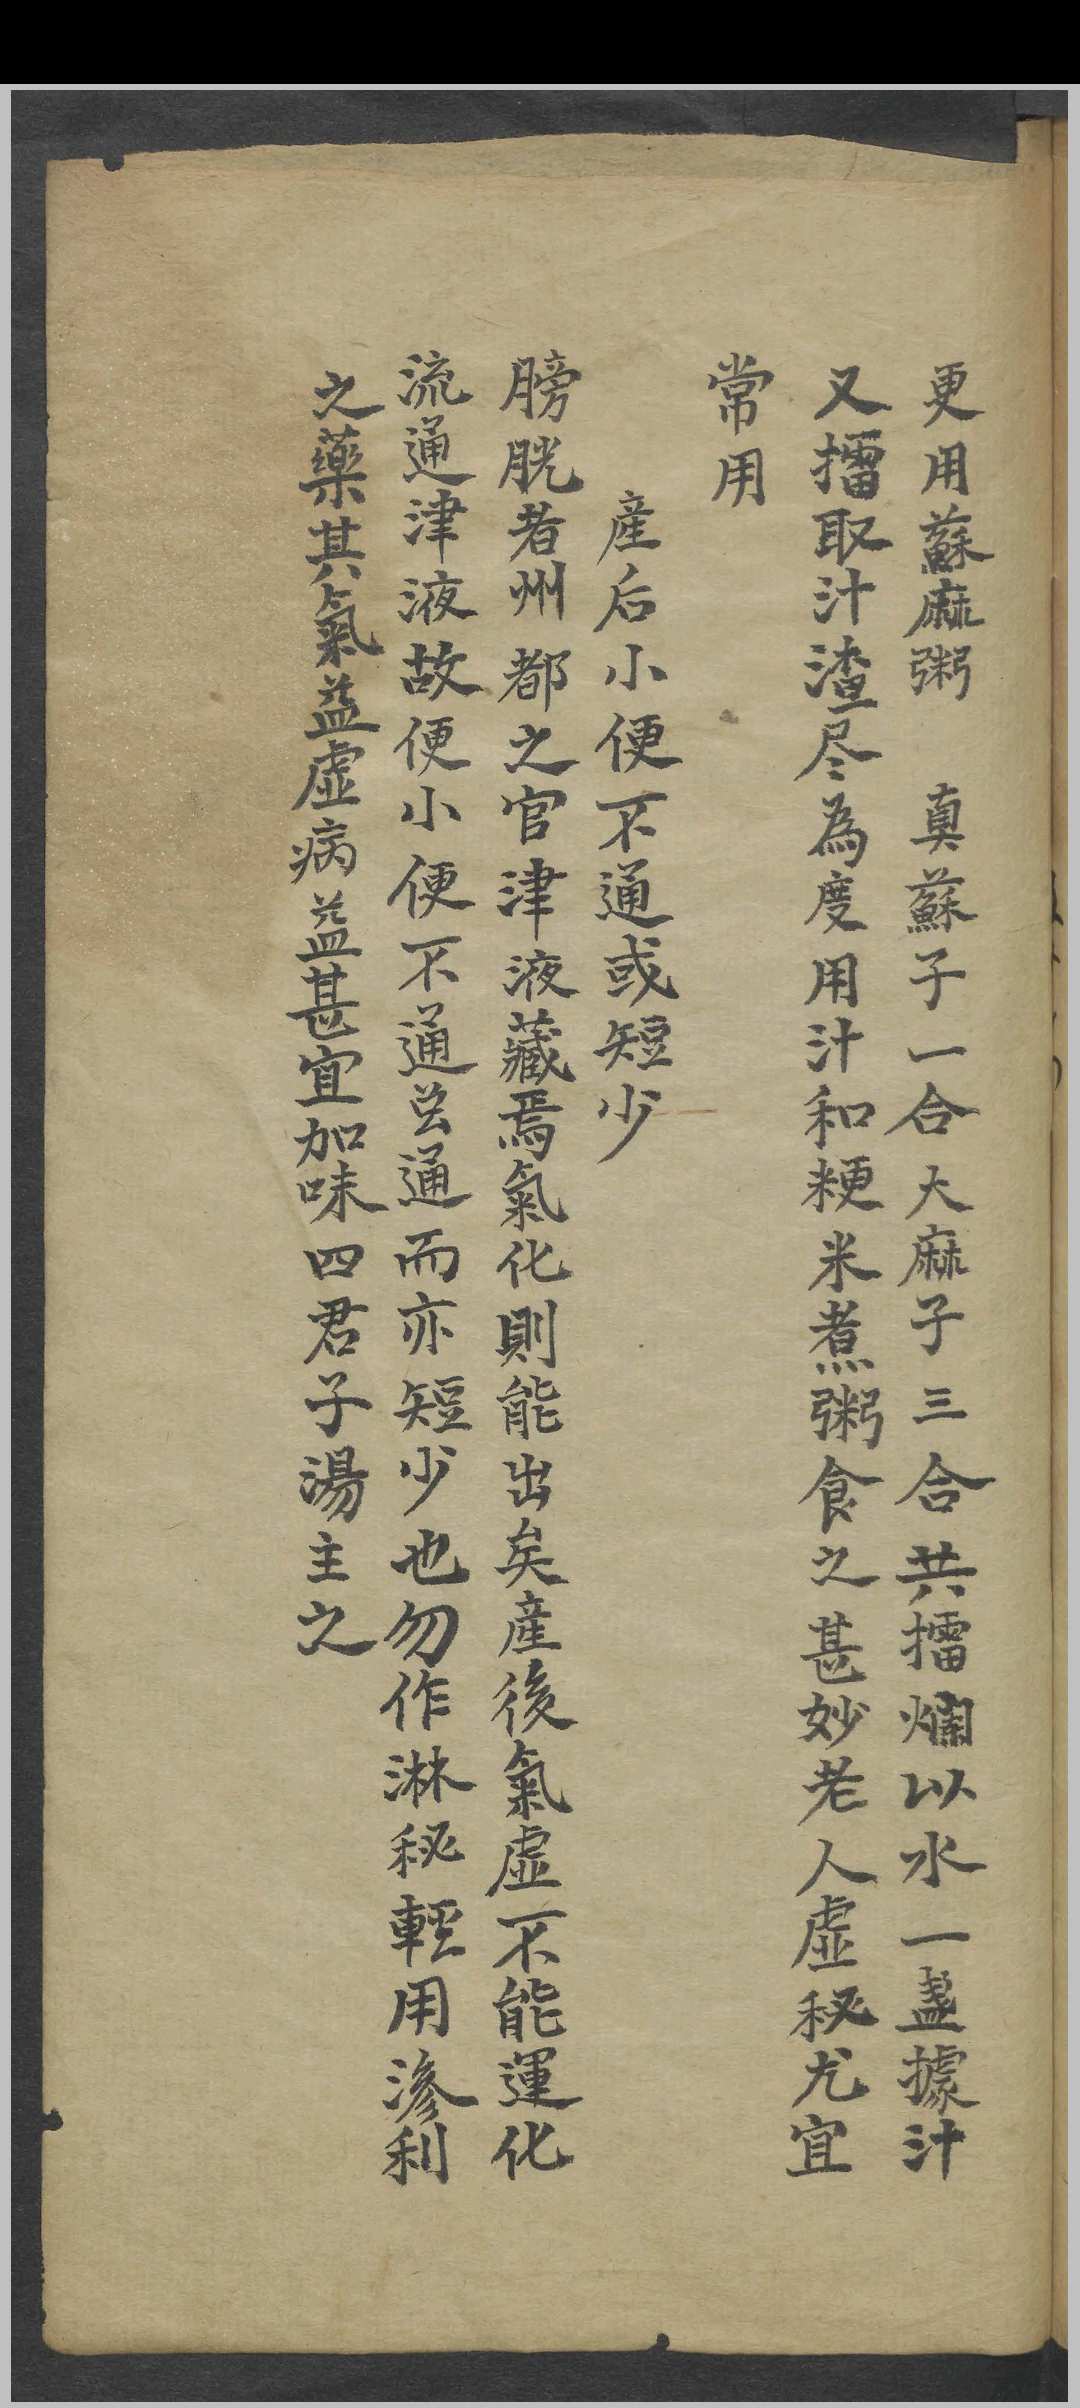 更用蘇麻粥　真蘇子一合大麻子三合共擂爛以水一盞據汁
又擂取汁渣尽為度用汁和粳米煮粥食之甚妙老人虛秘尤宜
常用
産后小便不通或短少
膀胱者州都之官津液藏焉氣化則能出矣産後氣虛不能運化
流通津液故便小便不通䖏通而亦短少也勿作淋秘輕用滲利
之藥其氣益虛病益甚宜加味四君子湯主之